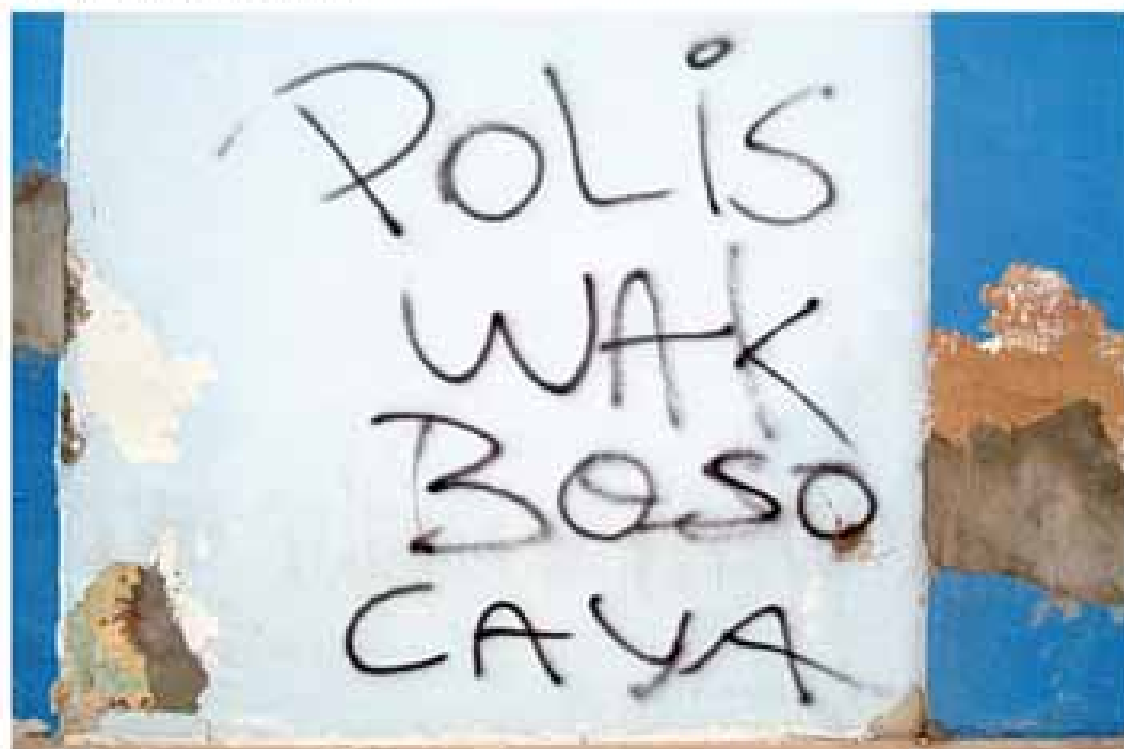 POLiS
WAK
BOSO
CAYA